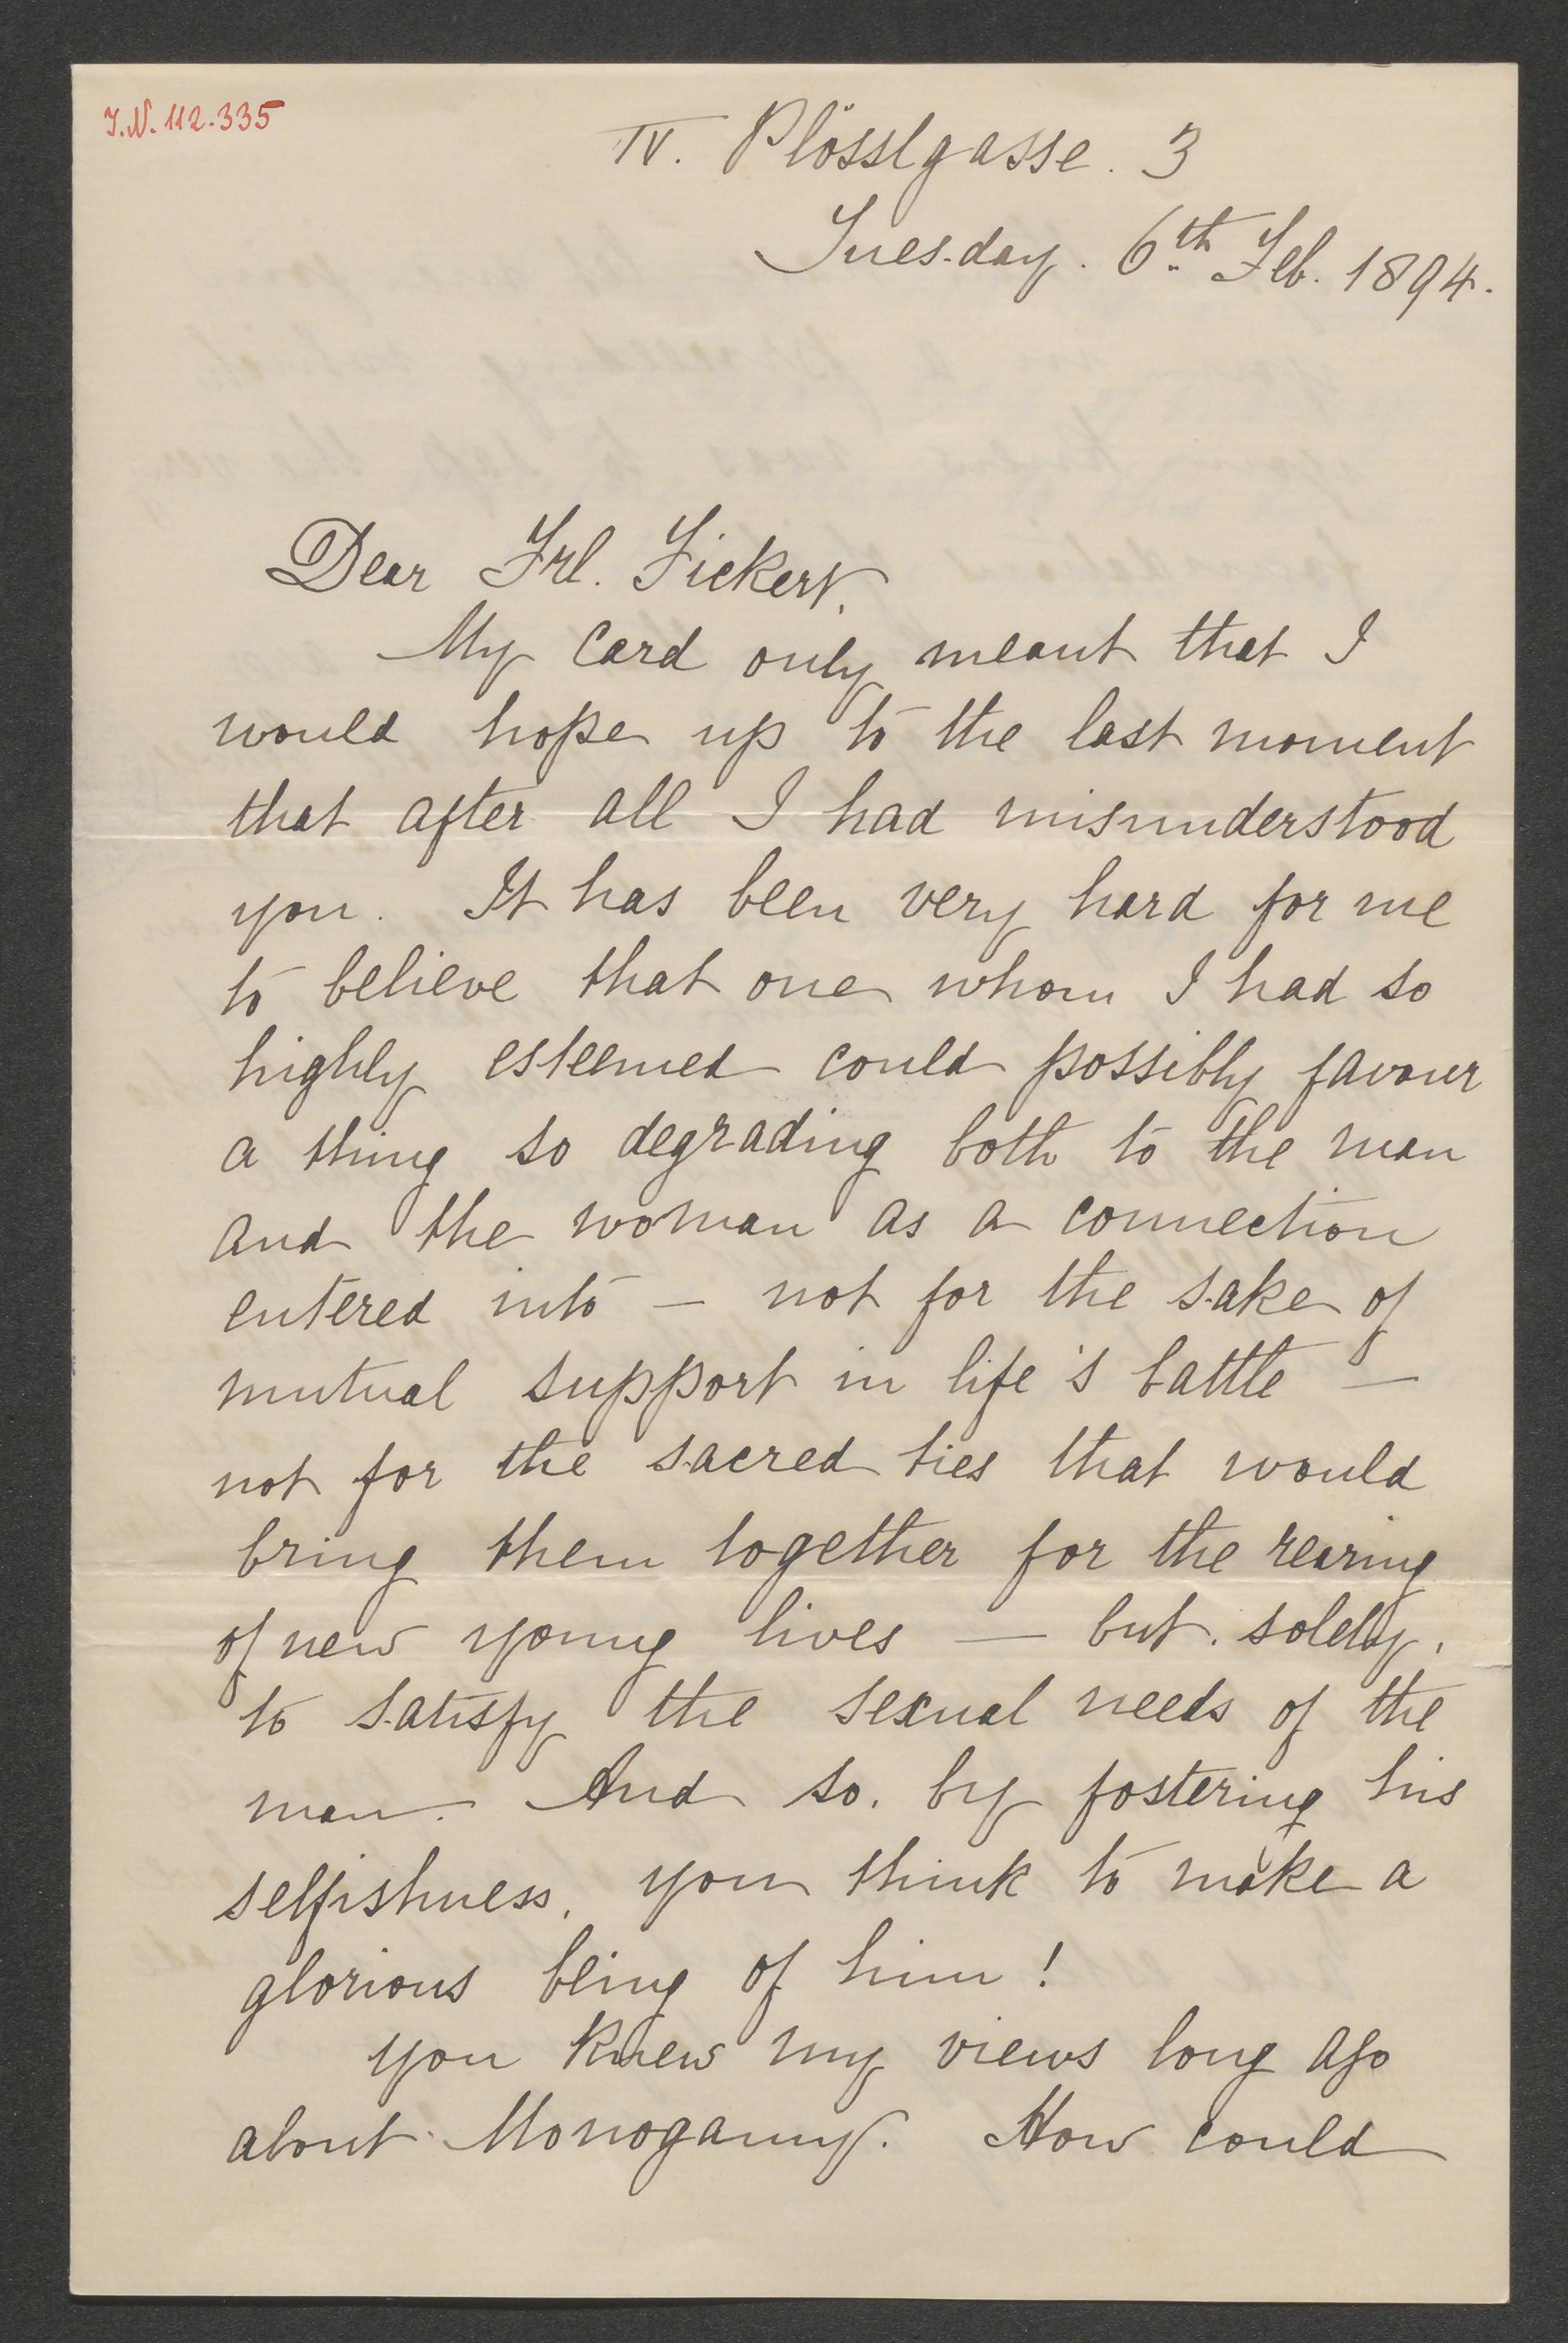 I.N. 112.335
IV. Plösslgasse. 3
Tuesday. 6th Feb. 1894.
Dear Frl. Fickert,
My card only meant that I
would hope up to the last moment
that after all I had misunderstood
you. It has been very hard for me
to believe that one whom I had so
highly esteemed could possibly favour
a thing so degrading both to the man
and the woman as a connection
entered into — not for the sake of
mutual support in life's battle —
not for the sacred ties that would
bring them together for the rearing
of new young lives — but. solely,
to satisfy the sexual needs of the
man. And so. by fostering his
selfishness, you think to make a
glorious being of him!
you knew my views long ago
about Monogamy. How could